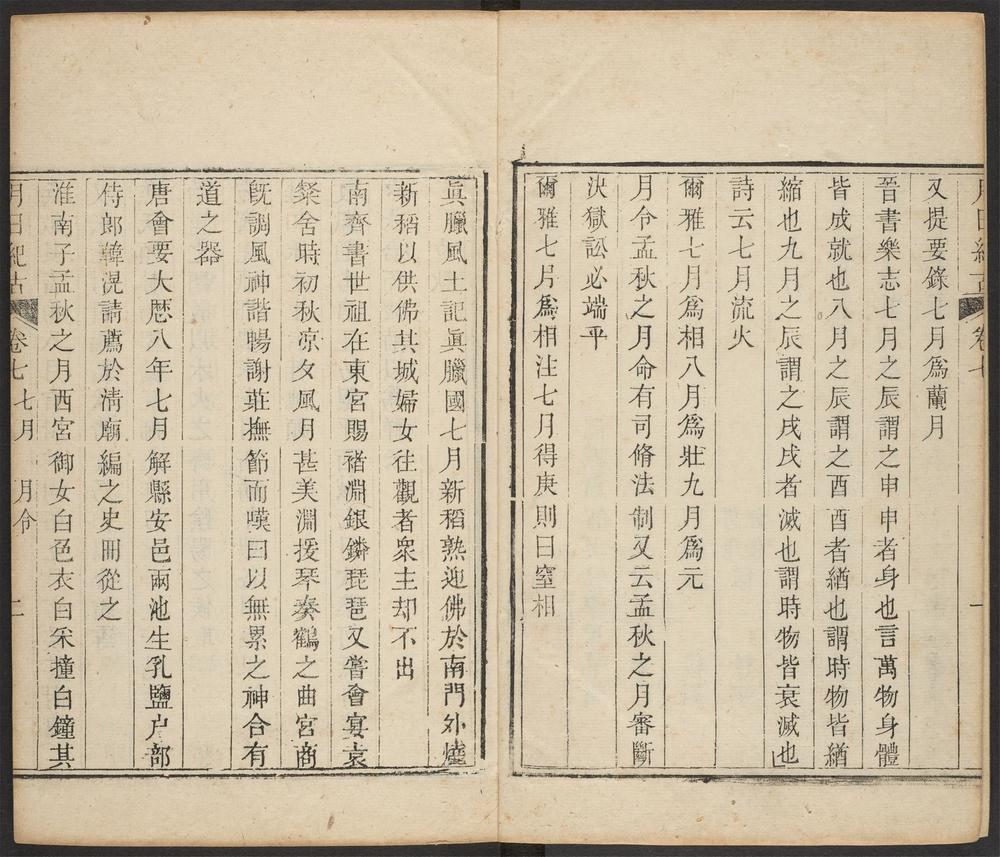 又提要錄七月爲蘭月
晉書樂志七月之辰謂之申申者身也言萬物身體
皆成就也八月之辰謂之酉酉者緧也謂時物皆緧
縮也九月之辰謂之戌戌者滅也謂時物皆衰滅也
詩云七月流火
爾雅七月爲相八月爲壯九月爲元
月令孟秋之月命有司脩法制又云孟秋之月審斷
決獄訟必端平
爾雅七月爲相注七月得庚則曰窒相
眞臘風土記眞臘國七月新稻熟迎佛於南門外燒
新稻以供佛其城婦女往觀者衆主却不出
南齊書世祖在東宮賜褚淵銀鏻琵琶又嘗會宴袁
粲舍時初秋凉夕風月甚美淵援琴奏鶴之曲宮商
旣調風神諧暢謝莊撫節而嘆曰以無累之神合有
道之器
唐會要大厯八年七月解縣安邑兩池生乳鹽户部
侍郎韓滉請薦於淸廟編之史冊從之
淮南子孟秋之月西宮御女白色衣白采撞白鐘其
月日紀古 卷七 七月 月令 二